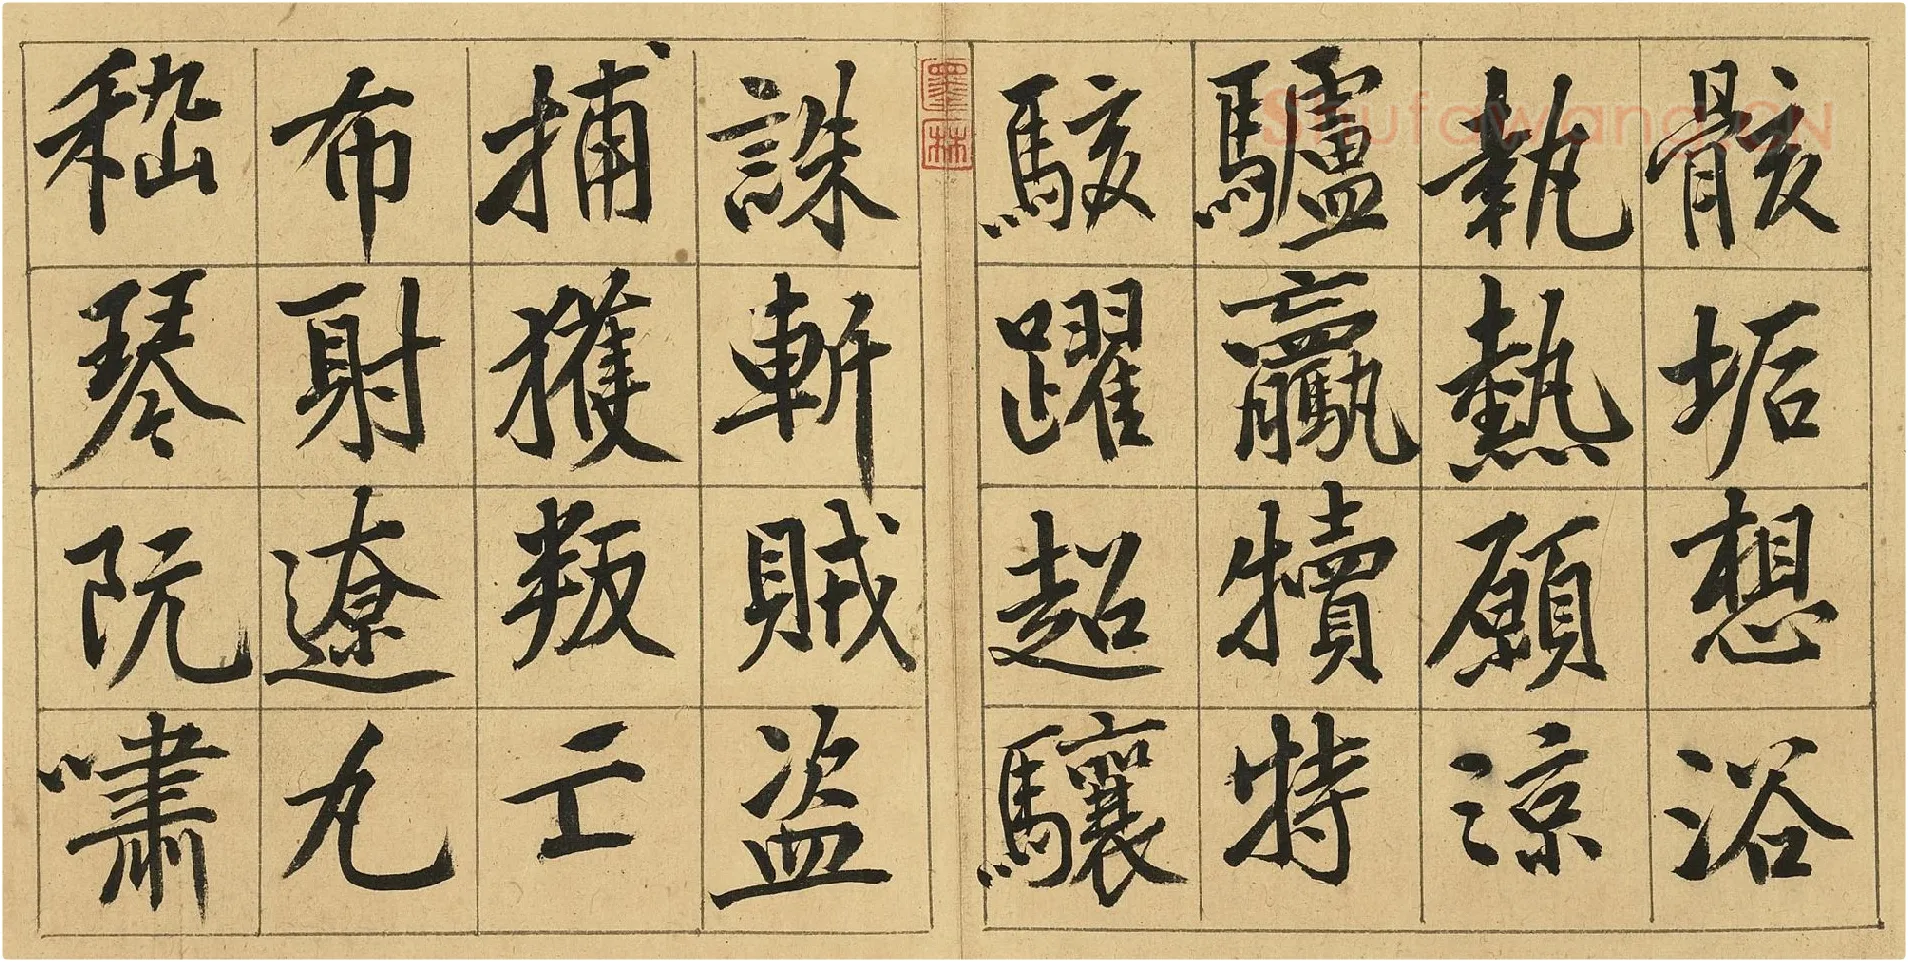 骸垢想浴
執熱願涼
驢驘犢特
駭躍超驤
誅斬賊盜
捕獲叛亡
布射遼丸
嵇琴阮嘯
墨林
Shufawang.CN